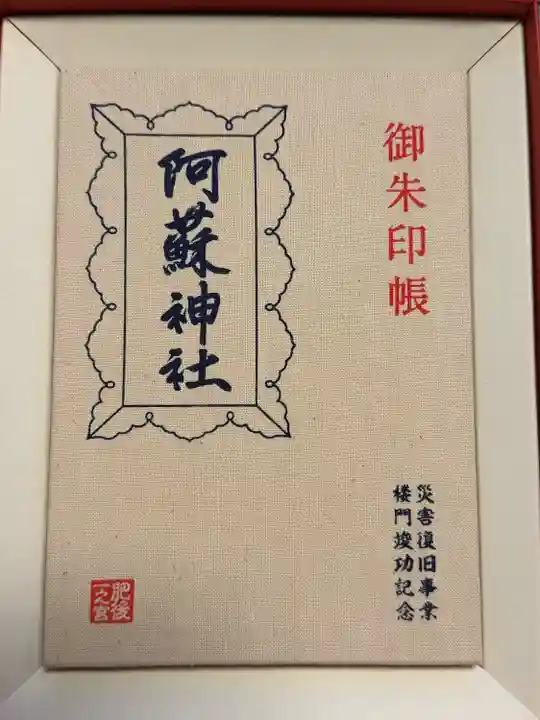 御朱印帳
災害復旧事業
楼門竣功記念
阿蘇神社
肥後
一の宮